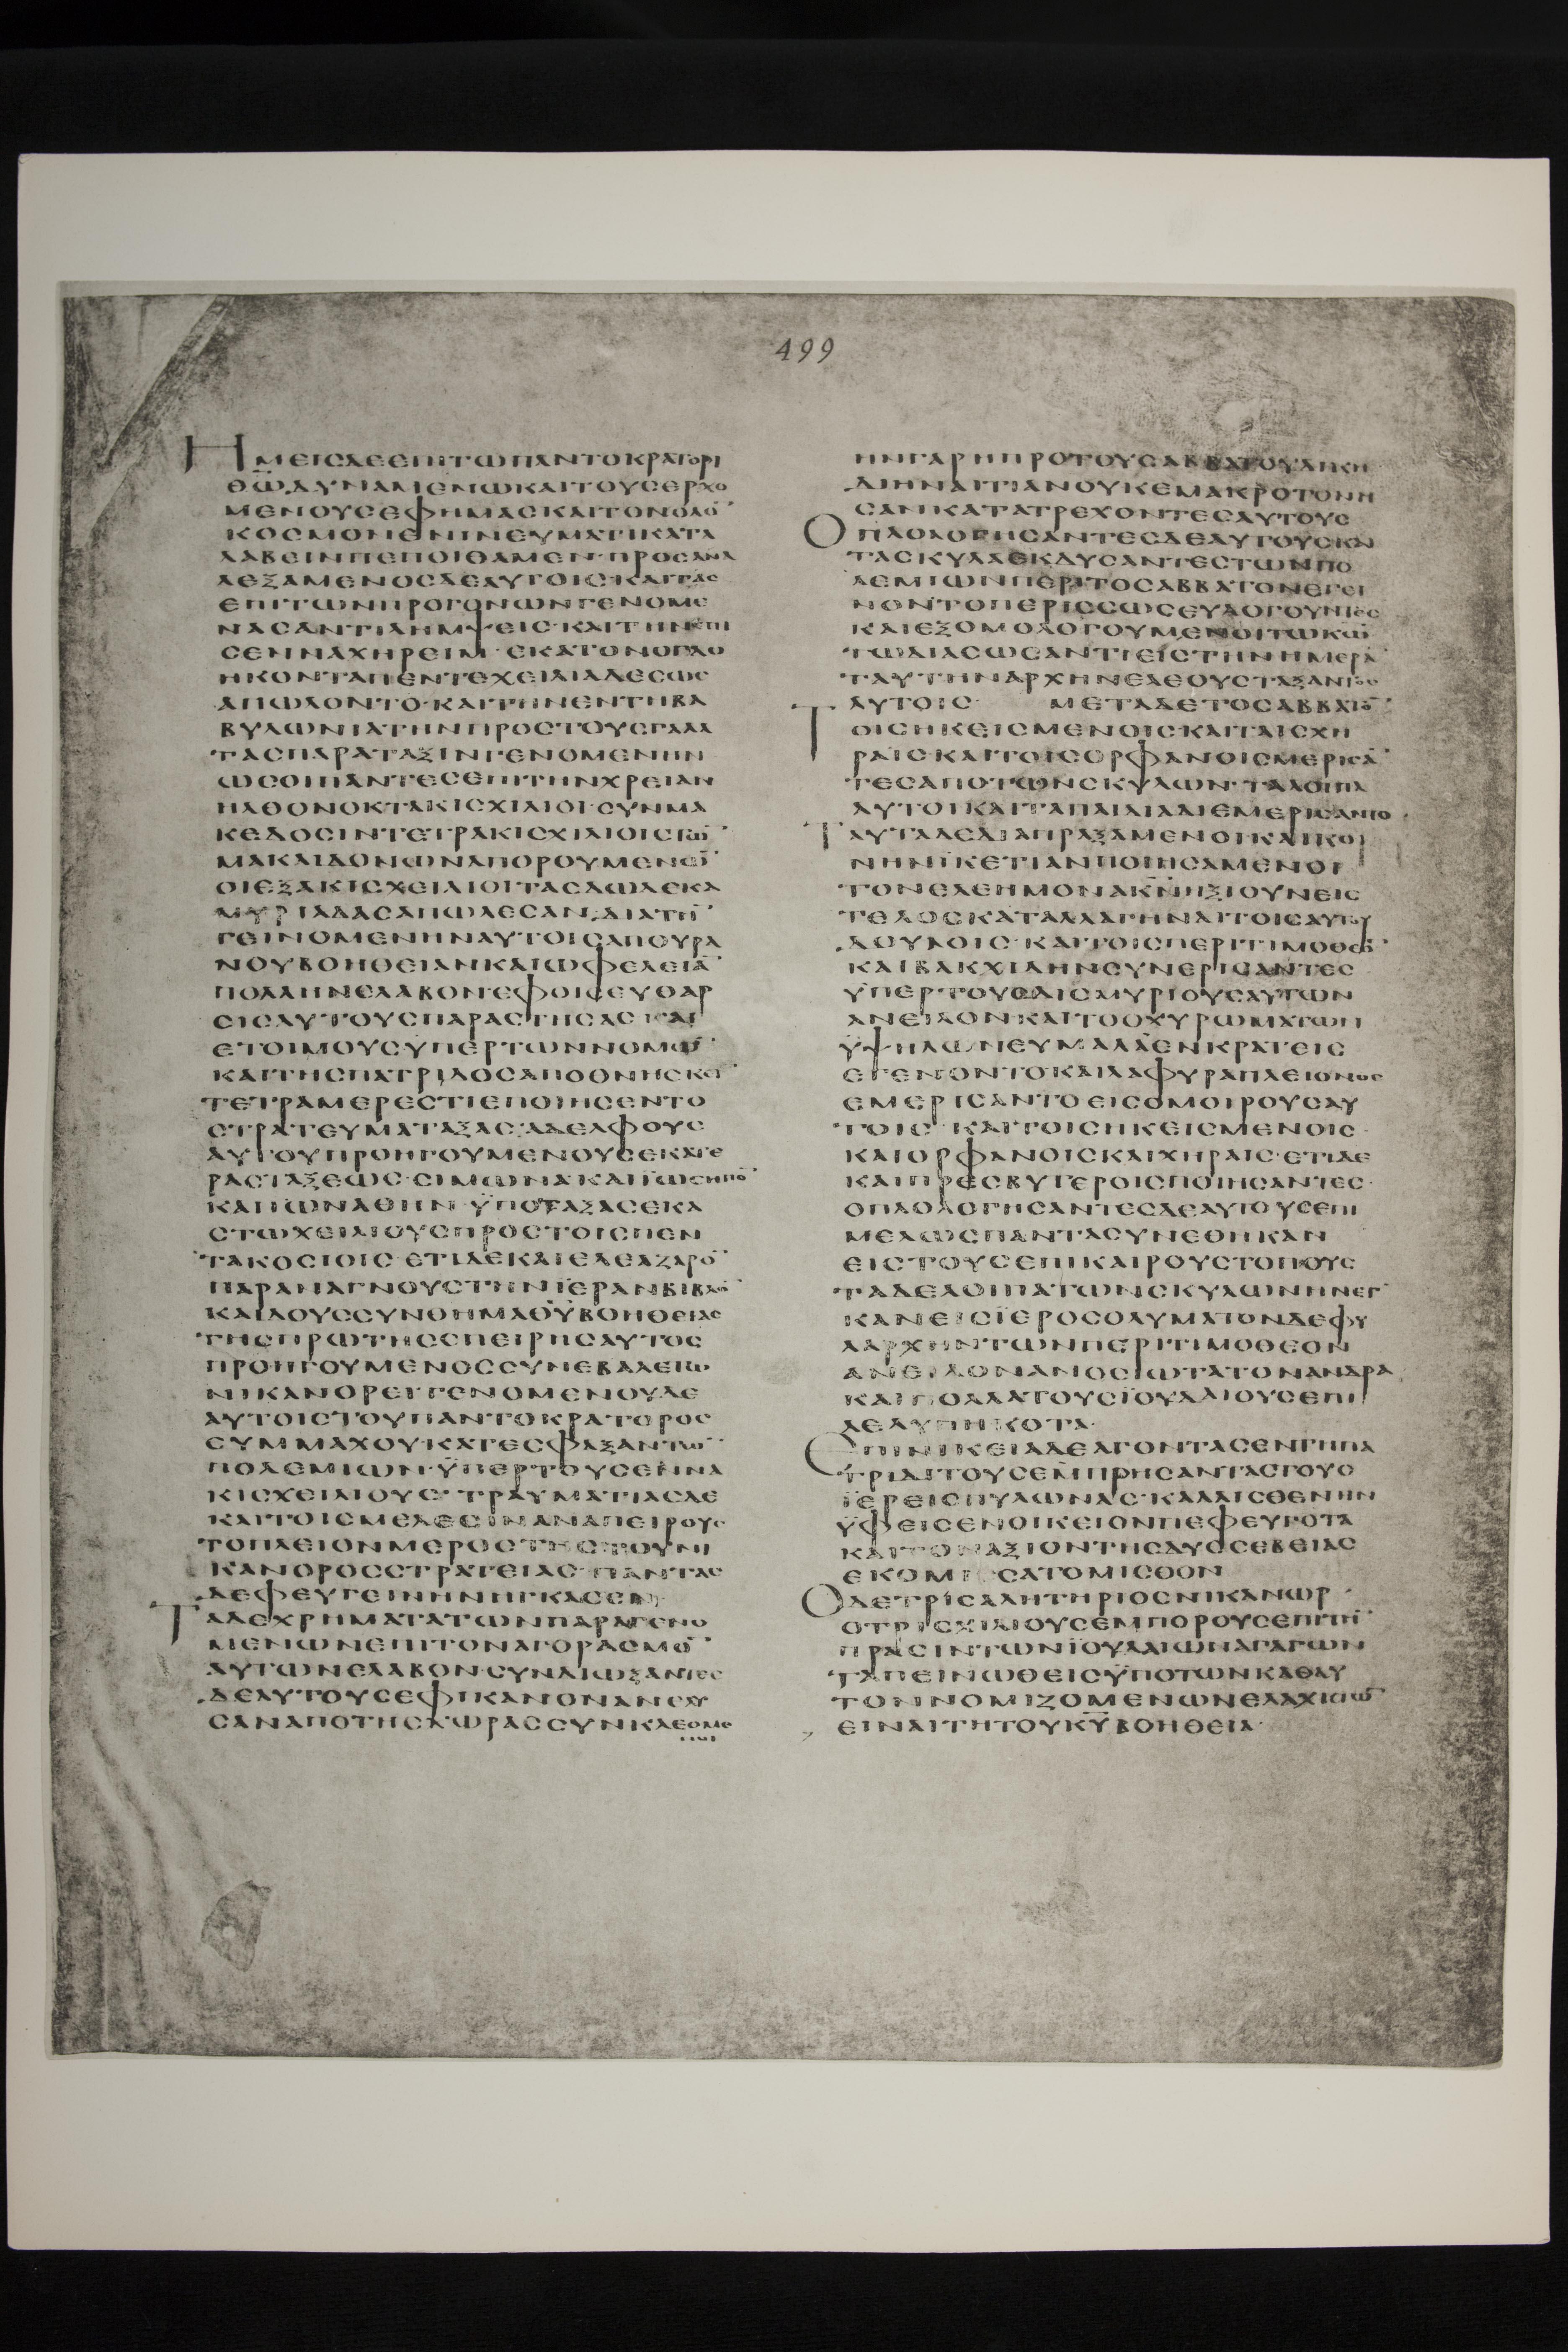 499
ΗΜΕΙСΔΕΕΠΙΤΩΠΑΝΤΟΚΡΑΤΟΡΙ
ΘΩ̅ΔΥΝΑΜΕΝΩΚΑΙΤΟΥСΕΡΧΟ
ΜΕΝΟΥСΕΦΗΜΑСΚΑΙΤΟΝΟΛΟ̅
ΚΟСΜΟΝΕΝΙΝΕΥΜΑΤΙΚΑΤΑ
ΛΑΒΕΙΝΠΕΠΟΙΘΑΜΕΝ·ΠΡΟСΑΝΑ
ΛΕΞΑΜΕΝΟСΔΕΑΥΤΟΙСΚΑΙΤΑС
ΕΠΙΤΩΝΠΡΟΓΟΝΩΝΓΕΝΟΜΕ
ΝΑСΑΝΤΙΛΗΜΨΕΙС·ΚΑΙΤΗΝΕΠΙ
СΕΝΝΑΧΗΡΕΙΜ·ΕΚΑΤΟΝΟΓΔΟ
ΗΚΟΝΤΑΠΕΝΤΕΧΕΙΛΙΑΔΕСΩС
ΑΠΩΛΟΝΤΟ·ΚΑΙΤΗΝΕΝΤΗΒΑ
ΒΥΛΩΝΙΑΤΗΝΠΡΟСΤΟΥСΓΑΛΑ
ΤΑСΠΑΡΑΤΑΞΙΝΓΕΝΟΜΕΝΗΝ
ΩСΟΙΠΑΝΤΕСΕΠΙΤΗΝΧΡΕΙΑΝ
ΗΛΘΟΝΟΚΤΑΚΙСΧΙΛΙΟΙ·СΥΝΜΑ
ΚΕΔΟСΙΝΤΕΤΡΑΚΙСΧΙΛΙΟΙСΤΩ̅
ΜΑΚΑΙΔΟΝΩΝΑΠΟΡΟΥΜΕΝΩ̅
ΟΙΕΞΑΚΙСΧΕΙΛΙΟΙΤΑСΔΩΔΕΚΑ
ΜΥΡΙΑΔΑСΑΠΩΛΕСΑΝ·ΔΙΑΤΗ̅
ΓΕΙΝΟΜΕΝΗΝΑΥΤΟΙСΑΠΟΥΡΑ
ΝΟΥΒΟΗΘΕΙΑΝΚΑΙΩΦΕΛΕΙΑ̅
ΠΟΛΛΗΝΕΛΑΒΟΝ·ΕΦΟΙСΕΥΘΑΡ
СΕΙСΑΥΤΟΥСΠΑΡΑСΤΗСΑСΚΑΙ
ΕΤΟΙΜΟΥСΥΠΕΡΤΩΝΝΟΜΩ̅
ΚΑΙΤΗСΠΑΤΡΙΔΟСΑΠΟΘΝΗСΚΕΙ̅
ΤΕΤΡΑΜΕΡΕСΤΙΕΠΟΙΗСΕΝΤΟ
СΤΡΑΤΕΥΜΑΤΑΞΑС·ΑΔΕΛΦΟΥС
ΑΥΤΟΥΠΡΟΗΓΟΥΜΕΝΟΥСΕΚΑΤΕ
ΡΑСΤΑΞΕΩС·СΙΜΩΝΑΚΑΙΙΩСΗΠΟ̅
ΚΑΙΙΩΝΑΘΗΝ·ΫΠΟΤΑΞΑСΕΚΑ
СΤΩΧΕΙΛΙΟΥСΠΡΟСΤΟΙСΠΕΝ
ΤΑΚΟСΙΟΙС·ΕΤΙΔΕΚΑΙΕΛΕΑΖΑΡΟ̅
ΠΑΡΑΝΑΓΝΟΥСΤΗΝΪΕΡΑΝΒΙΒΛΟ̅
ΚΑΙΔΟΥССΥΝΘΗΜΑΘΥ̅ΒΟΗΘΕΙΑС
ΤΗСΠΡΩΤΗССΠΕΙΡΗСΑΥΤΟС
ΠΡΟΗΓΟΥΜΕΝΟССΥΝΕΒΑΛΕΤΩ
ΝΙΚΑΝΟΡΕΙ·ΓΕΝΟΜΕΝΟΥΔΕ
ΑΥΤΟΙСΤΟΥΠΑΝΤΟΚΡΑΤΟΡΟС
СΥΜΜΑΧΟΥ·ΚΑΤΕСΦΑΞΑΝΤΩ̅
ΠΟΛΕΜΙΩΝ·ΫΠΕΡΤΟΥСΕΝΝΑ
ΚΙСΧΕΙΛΙΟΥС·ΤΡΑΥΜΑΤΙΑСΔΕ
ΚΑΙΤΟΙСΜΕΛΕСΙΝΑΝΑΠΕΙΡΟΥС
ΤΟΠΛΕΙΟΝΜΕΡΟСΤΗСΤΟΥΝΙ
ΚΑΝΟΡΟССΤΡΑΤΕΙΑС·ΠΑΝΤΑС
ΔΕΦΕΥΓΕΙΝΗΝΗΓΚΑСΕΝ
ΤΑΔΕΧΡΗΜΑΤΑΤΩΝΠΑΡΑΓΕΝΟ
ΜΕΝΩΝΕΠΙΤΟΝΑΓΟΡΑСΜΟ̅
ΑΥΤΩΝΕΛΑΒΟΝ·СΥΝΔΙΩΞΑΝΤΕС
ΔΕΑΥΤΟΥСΕΦΙΚΑΝΟΝΑΝΕΛΥ
СΑΝΑΠΟΤΗСΑΩΡΑССΥΝΚΛΕΟΜΕ
ΝΟΙ
ΗΝΓΑΡΗΠΡΟΤΟΥСΑΒΒΑΤΟΥΔΙΚΗ
ΔΙΗΝΑΙΤΙΑΝΟΥΚΕΜΑΚΡΟΤΟΝΗ
СΑΝΚΑΤΑΤΡΕΧΟΝΤΕСΑΥΤΟΥС
ΟΠΛΟΛΟΓΗСΑΝΤΕСΔΕΑΥΤΟΥСΚΑΙ
ΤΑСΚΥΛΑΕΚΔΥСΑΝΤΕСΤΩΝΠΟ
ΛΕΜΙΩΝΠΕΡΙΤΟСΑΒΒΑΤΟΝΕΓΕΙ
ΝΟΝΤΟΠΕΡΙССΩСΕΥΛΟΓΟΥΝΤΕС
ΚΑΙΕΞΟΜΟΛΟΓΟΥΜΕΝΟΙΤΩΚΩ̅
ΤΩΔΙΑСΩСΑΝΤΙΕΙСΤΗΝΗΜΕΡΑ̅
ΤΑΥΤΗΝΑΡΧΗΝΕΛΕΟΥСΤΑΞΑΝΤΟС
ΑΥΤΟΙС· ΜΕΤΑΔΕΤΟСΑΒΒΑΤΟ̅
ΤΟΙСΗΚΕΙСΜΕΝΟΙСΚΑΙΤΑΙСΧΗ
ΡΑΙС·ΚΑΙΤΟΙСΟΡΦΑΝΟΙСΜΕΡΙСΑ̅
ΤΕСΑΠΟΤΩΝСΚΥΛΩΝ·ΤΑΛΟΙΠΑ
ΑΥΤΟΙΚΑΙΤΑΠΑΙΔΙΑΔΙΕΜΕΡΙСΑΝΤΟ
ΤΑΥΤΑΔΕΔΙΑΠΡΑΞΑΜΕΝΟΙΚΑΙΚΟΙ
ΝΗΝΪΚΕΤΙΑΝΠΟΙΗСΑΜΕΝΟΙ
ΤΟΝΕΛΕΗΜΟΝΑΚΝ̅ΗΞΙΟΥΝΕΙС
ΤΕΛΟСΚΑΤΑΛΛΑΓΗΝΑΙΤΟΙСΑΥΤΟΥ
ΔΟΥΛΟΙС·ΚΑΙΤΟΙСΠΕΡΙΤΙΜΟΘΕΟ̅
ΚΑΙΒΑΚΧΙΔΗΝСΥΝΕΡΙСΑΝΤΕС
ΫΠΕΡΤΟΥСΔΙСΜΥΡΙΟΥСΑΥΤΩΝ
ΑΝΕΙΛΟΝ·ΚΑΙΤΟΟΧΥΡΩΜΑΤΩΝ
ΫΨΗΛΩΝΕΥΜΑΛΑΕΝΚΡΑΤΕΙС
ΕΓΕΝΟΝΤΟΚΑΙΛΑΦΥΡΑΠΛΕΙΟΝΑС
ΕΜΕΡΙСΑΝΤΟΕΙСΟΜΟΙΡΟΥСΑΥ
ΤΟΙС·ΚΑΙΤΟΙСΗΚΕΙСΜΕΝΟΙС
ΚΑΙΟΡΦΑΝΟΙСΚΑΙΧΗΡΑΙС·ΕΤΙΔΕ
ΚΑΙΠΡΕСΒΥΤΕΡΟΙСΠΟΙΗСΑΝΤΕС·
ΟΠΛΟΛΟΓΗСΑΝΤΕСΔΕΑΥΤΟΥСΕΠΙ
ΜΕΛΩСΠΑΝΤΑСΥΝΕΘΗΚΑΝ
ΕΙСΤΟΥСΕΠΙΚΑΙΡΟΥСΤΟΠΟΥС
ΤΑΔΕΛΟΙΠΑΤΩΝСΚΥΛΩΝΗΝΕΓ
ΚΑΝΕΙСΪΕΡΟСΟΛΥΜΑΤΟΝΔΕΦΥ
ΛΑΡΧΗΝΤΩΝΠΕΡΙΤΙΜΟΘΕΟΝ
ΑΝΕΙΛΟΝΑΝΟСΙΩΤΑΤΟΝΑΝΔΡΑ
ΚΑΙΠΟΛΛΑΤΟΥСΪΟΥΔΑΙΟΥСΕΠΙ
ΛΕΛΥΠΗΚΟΤΑ·
ΕΠΙΝΙΚΕΙΑΔΕΑΓΟΝΤΑСΕΝΤΗΠΑ
ΤΡΙΔΙΤΟΥСΕΜΠΡΗСΑΝΤΑСΤΟΥС
ΪΕΡΕΙСΠΥΛΩΝΑС·ΚΑΛΛΙСΘΕΝΗΝ
ΫΦΕΙСΕΝΟΙΚΕΙΟΝΠΕΦΕΥΓΟΤΑ
ΚΑΙΤΟΝΑΞΙΟΝΤΗСΔΥССΕΒΕΙΑС
ΕΚΟΜΙСΑΤΟΜΙСΘΟΝ
ΟΔΕΤΡΙСΑΛΗΤΗΡΙΟСΝΙΚΑΝΩΡ·
ΟΤΡΙСΧΙΛΙΟΥСΕΜΠΟΡΟΥСΕΠΙΤΗ̅
ΠΡΑСΙΝΤΩΝΪΟΥΔΑΙΩΝΑΓΑΓΩΝ
ΤΑΠΕΙΝΩΘΕΙСΫΠΟΤΩΝΚΑΘΑΥ
ΤΟΝΝΟΜΙΖΟΜΕΝΩΝΕΛΑΧΙСΤΩ̅
ΕΙΝΑΙΤΗΤΟΥΚΥ̅ΒΟΗΘΕΙΑ·